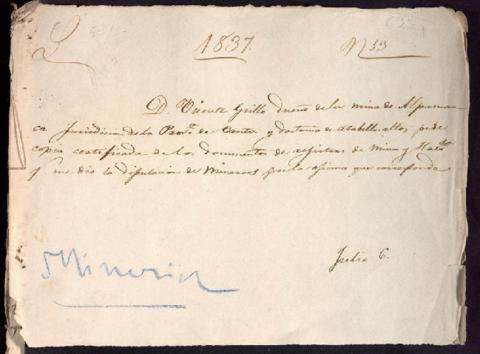 1837. N 53
D. Vicente Grillo dueño de la mina de Alpamar
ca Jurisdicion de la Prov.ª de Canta y doctrina de Atabillos altos pide
copia certificada de los documentos de registros de Mina y Hacᵈᵃ
q.e me dio la diputacion de Mineros por la oficina que corresponda
Julio 6.
Mineria